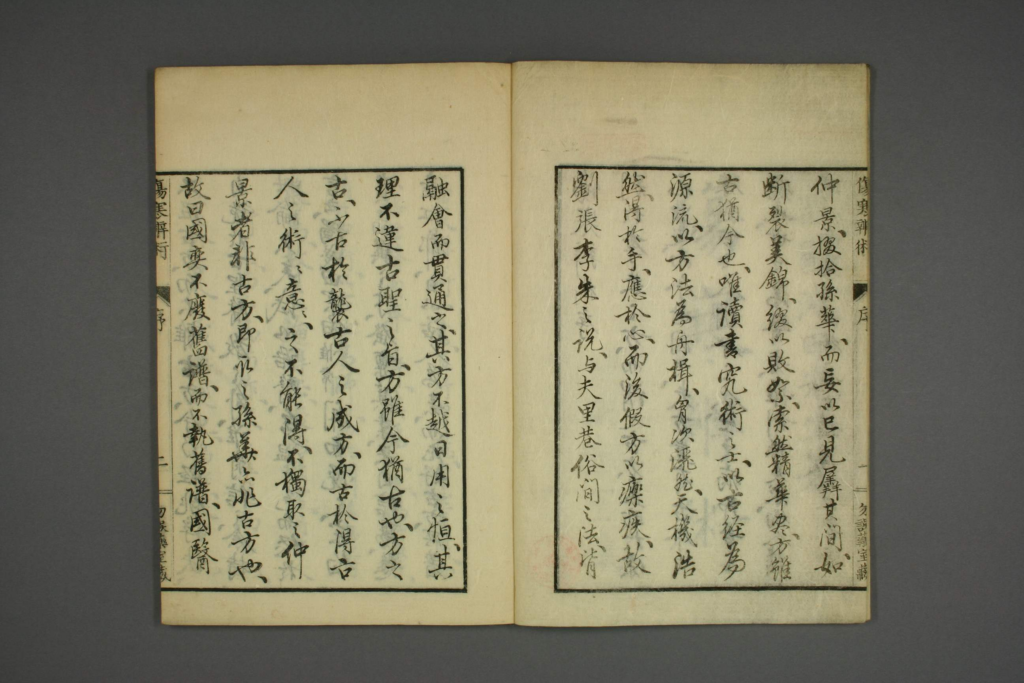 傷寒辨術
序
一
勿誤藥室藏
仲景、掇拾孫華、而妄以己見羼其間、如
斷裂美錦、綴以敗絮、索然精華尽、方雖
古猶今也、唯讀書究術之士、以古經為
源流、以方法為舟楫、胸次洮然、天機浩
然、得於手、應於心、而後假方以療疾、故
劉張李朱之說、与夫里巷俗間之法、皆
融會而貫通之、其方不越日用之恒、其
理不違古聖之旨、方雖今猶古也、方之
古、少古於襲古人之成方、而古於得古
人之術、術意、之不能得、不獨取之仲
景者非古方、即取之孫華亦非古方也、
故曰國奕不廢舊譜、而不執舊譜、國醫
傷寒辨術
序
二
勿誤藥室藏